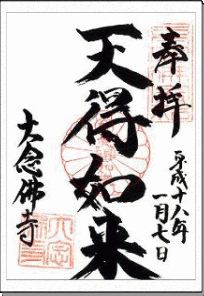 奉拝
平成十八年
一月七日
天得如来
大念佛寺